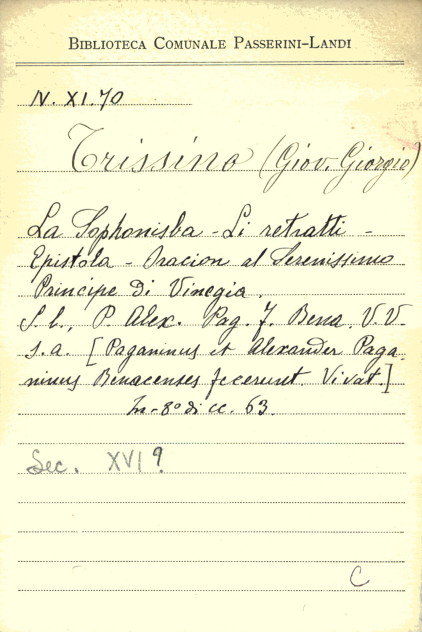 BIBLIOTECA COMUNALE PASSERINI-LANDI
N. XI. 70
Trissino (Giov. Giorgio)
La Sophonisba - Li retratti -
Epistola - Oracion al Serenissimo
Principe di Vinegia.
S. l., P. Alex. Pag. F. Bena. V. V.
s. a. [Paganinus et Alexander Paga
ninus Benacenses fecerunt. Vivat.]
In-8º di cc. 63.
Sec. XVI?
C